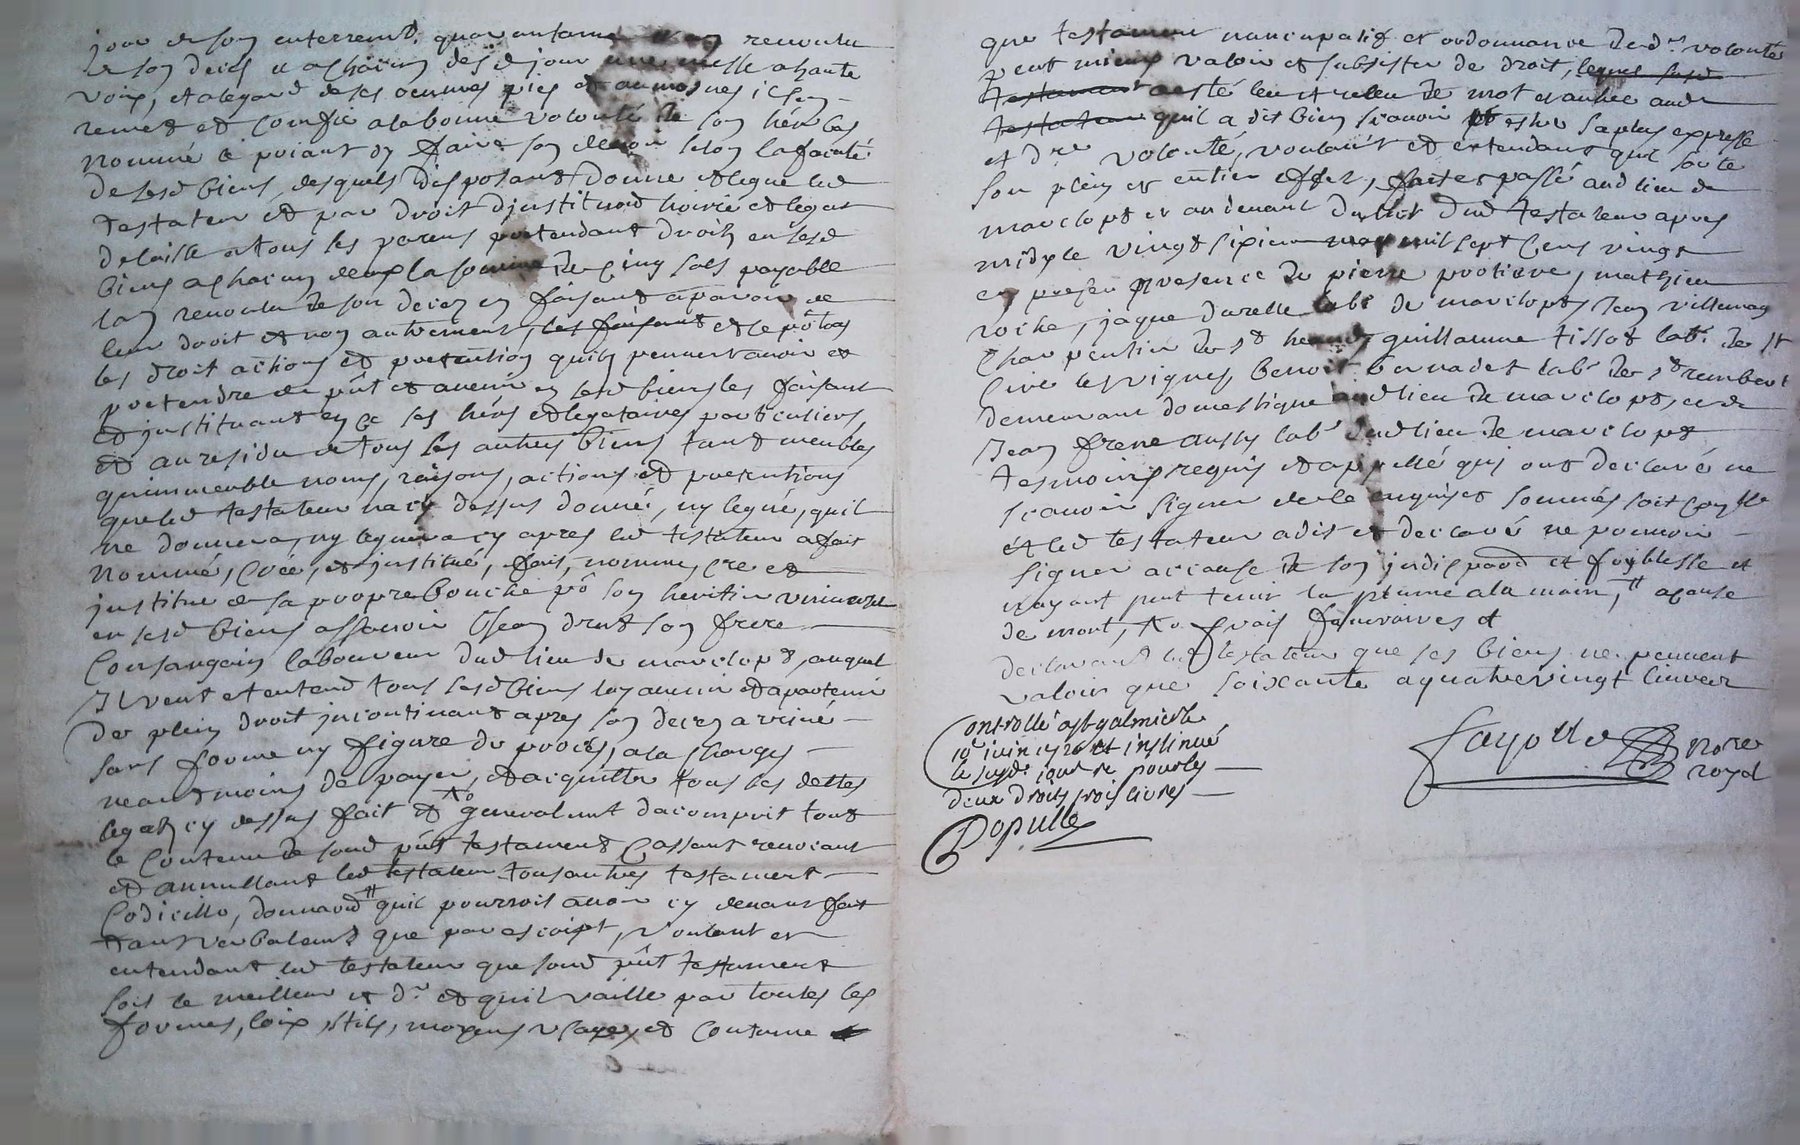 jour de son enterremt. quarantaine et an revoulu
de son decez et a chacun desd jour une messe a haute
voix, et alegard de ses oeuvres pies et aumosnes il sen
remet et confie a la bonne volonté de son hér bas
nommé le priant dy faire son devoir selon la faculté
de sesd biens, desquels disposant donne et legue led
testateur et par droit djnstituon hoirié et legat
delaisse a tous ses parens pretendant droitz en sesd
biens a chacun deux la somme de cinq sols payable
lan revoulu de son decez en faisant aparoir de
leur droit et non autrement, les faisant et le pô tous
les droit actions et pretention quils peuvent avoir et
pretendre de pñt et avenir en sesd biens les faisant
et jnstituant en ce ses hérs et legataires particuliers,
et au residu de tous ses autres biens tant meubles
quimmeuble noms, raisons, actions et pretentions
que led testateur na cy dessus donné, ny legué, quil
ne donnera, ny leguera cy apres led testateur a fait
nommé, créé, et jnstitué, fait, nomme, cre et
jnstitue de sa propre bouche pô son heritier universel
en sesd biens assavoir Jean drut son frere
consanguin laboureur dud lieu de marclopt, auquel
Jl veut et entend tous sesd biens luy avenir et apartenir
de plein droit jncontinant apres son decez arrivé
sans forme ny figure de procés, a la charge
neantmoins de payer, et acquitter tous ses dettes
legatz cy dessus fait et generalemt dacomplir tout
le contenu de sond pñt testament cassant revocant
et annullant led testateur tous autres testament
Codicille, donnaon quil pourroit avoir cy devant fait
tant verbalemt que par escript, voulant et
entendant led testateur que sond pñt testament
soit le meilleur et dr. et quil vaille par toutes les
formes, loix, stils, moyens usages, et coutume
que testament nuncupatif et ordonnance de dr. volonté
peut mieux valoir et subsister de droit, lequel susd
testament a esté leu et releu de mot a autre aud
testateur quil a dit bien scavoir et estre sa plus expresse
et dre volonté, voulant et entendant quil sorte
son plein et entier effet, fait et passé aud lieu de
marclopt et au devant du dud testateur apres
midy le vingt sixieme may mil sept cens vingt
en presence de pierre protiere, mathieu
roche, jaque durelle labr de marclopt, Jean villemag
charpentier de st guillaume tissot labr. de st
Cire les vignes, benoit bernadet labr de st rembert
demeurant domestique aud lieu de marclopt, et
Jean frere aussy labr dud lieu de marclopt
tesmoins requis et appellé qui ont declaré ne
scavoir signer de le enquis et sommés soit
et led testateur a dit et declaré ne pouvoir
signer a cause de son jndisposon et foyblesse et
nayant peut tenir la plume a la main, a cause
de mort,
declarant led testateur que ses biens ne peuvent
valoir que soixante a quatrevingt livres
Controllé a st galmier le
10e juin 1720 et insinué
le susd. jour re pour les
deux droits trois livres
Populle
fayolle nore
royal